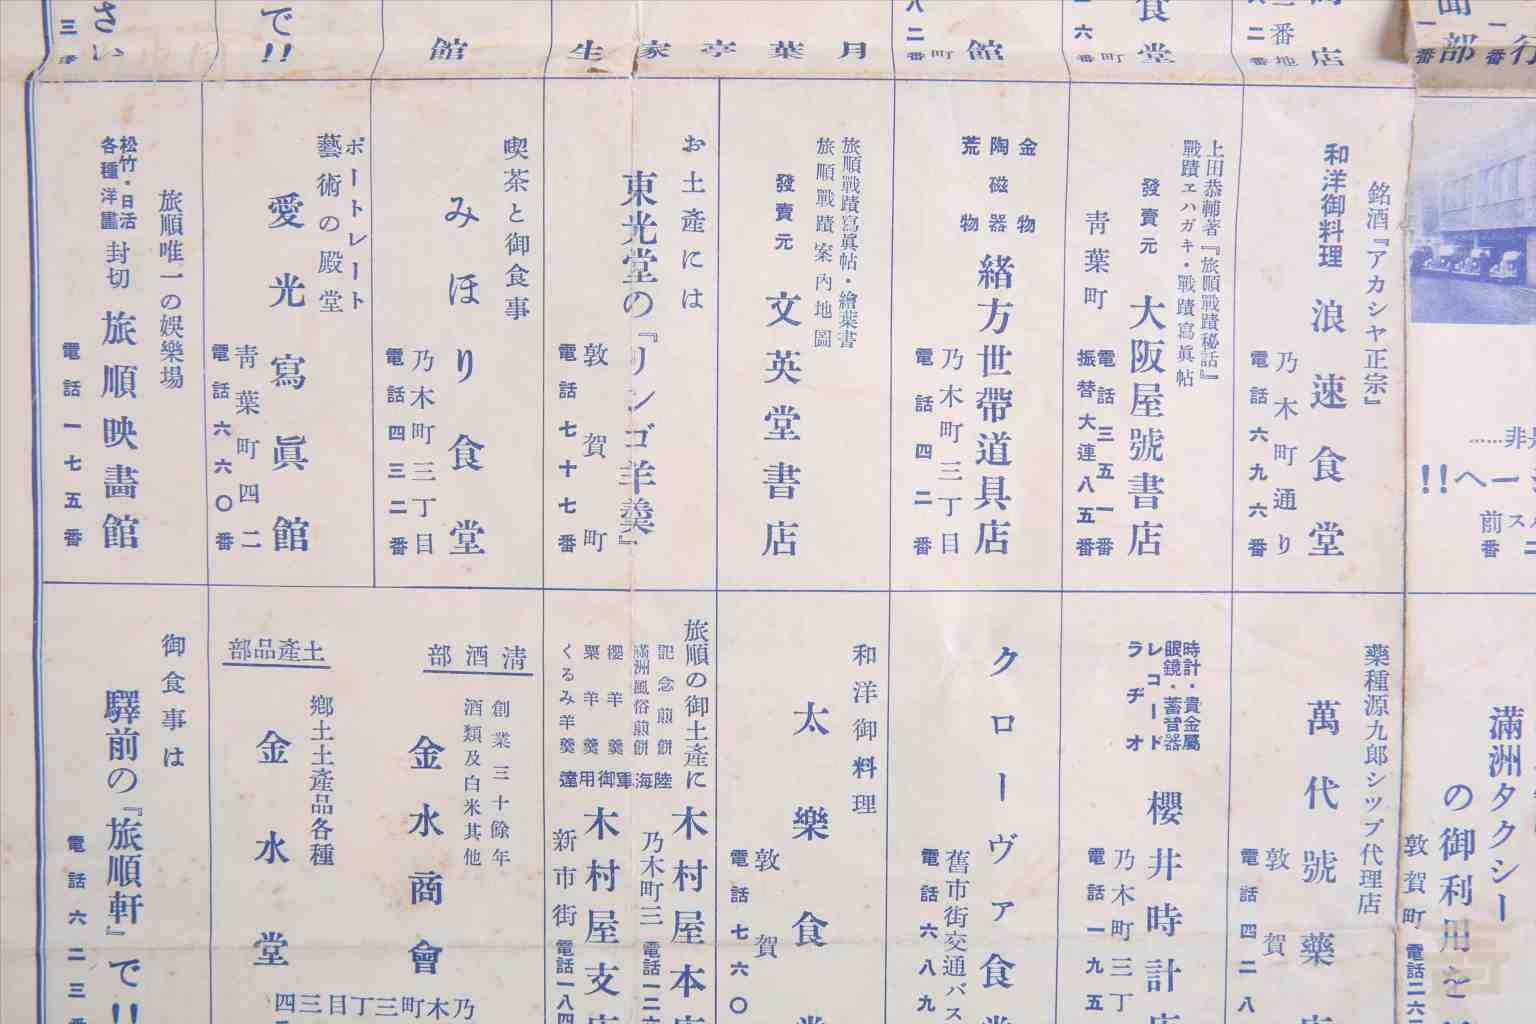 聞
一行
部
一番
番
店
番地
六二
食堂
一六
町番
館
八二
町番
月葉亭家生
館
で!!
さい
三
銘酒『アカシヤ正宗』
和洋御料理
浪速食堂
乃木町通り
電話六九六番
上田恭輔著『旅順戰蹟秘話』
戰蹟ヱハガキ・戰蹟寫眞帖
發賣元
大阪屋號書店
青葉町
電話三五一番
振替大連八五番
金物
陶磁器
荒物
緒方世帶道具店
乃木町三丁目
電話四二番
旅順戰蹟寫眞帖・繪葉書
旅順戰蹟案內地圖
發賣元
文英堂書店
お土產には
東光堂の『リンゴ羊羹』
敦賀町
電話七十七番
喫茶と御食事
みほり食堂
乃木町三丁目
電話四三二番
ポートレート
藝術の殿堂
愛光寫眞館
青葉町四二
電話六六〇番
旅順唯一の娛樂場
松竹・日活
各種洋畫
封切
旅順映畵館
電話一七五番
ーヘ!!
前
番
滿洲タクシー
の御利用を
敦賀町
電話二六二
藥種源九郎シツプ代理店
萬代號藥店
敦賀
電話四二八
時計・貴金屬
眼鏡・蓄音器
レコード
ラヂオ
櫻井時計店
乃木町三丁
電話一九五
クローヴァ食堂
舊市街交通バス
電話六八九
和洋御料理
太樂食堂
敦賀
電話七六〇
旅順の御土產に
記念煎餅
滿洲風俗煎餅
櫻羊羹
栗羊羹
くるみ羊羹
陸海軍御用達
木村屋本店
乃木町三
電話一二六
木村屋支店
新市街
電話一八四
清酒部
創業三十餘年
酒類及白米其他
金水商會
土產品部
鄕土土產品各種
金水堂
乃木町三丁目三四
御食事は
驛前の『旅順軒』で!!
電話六二三番